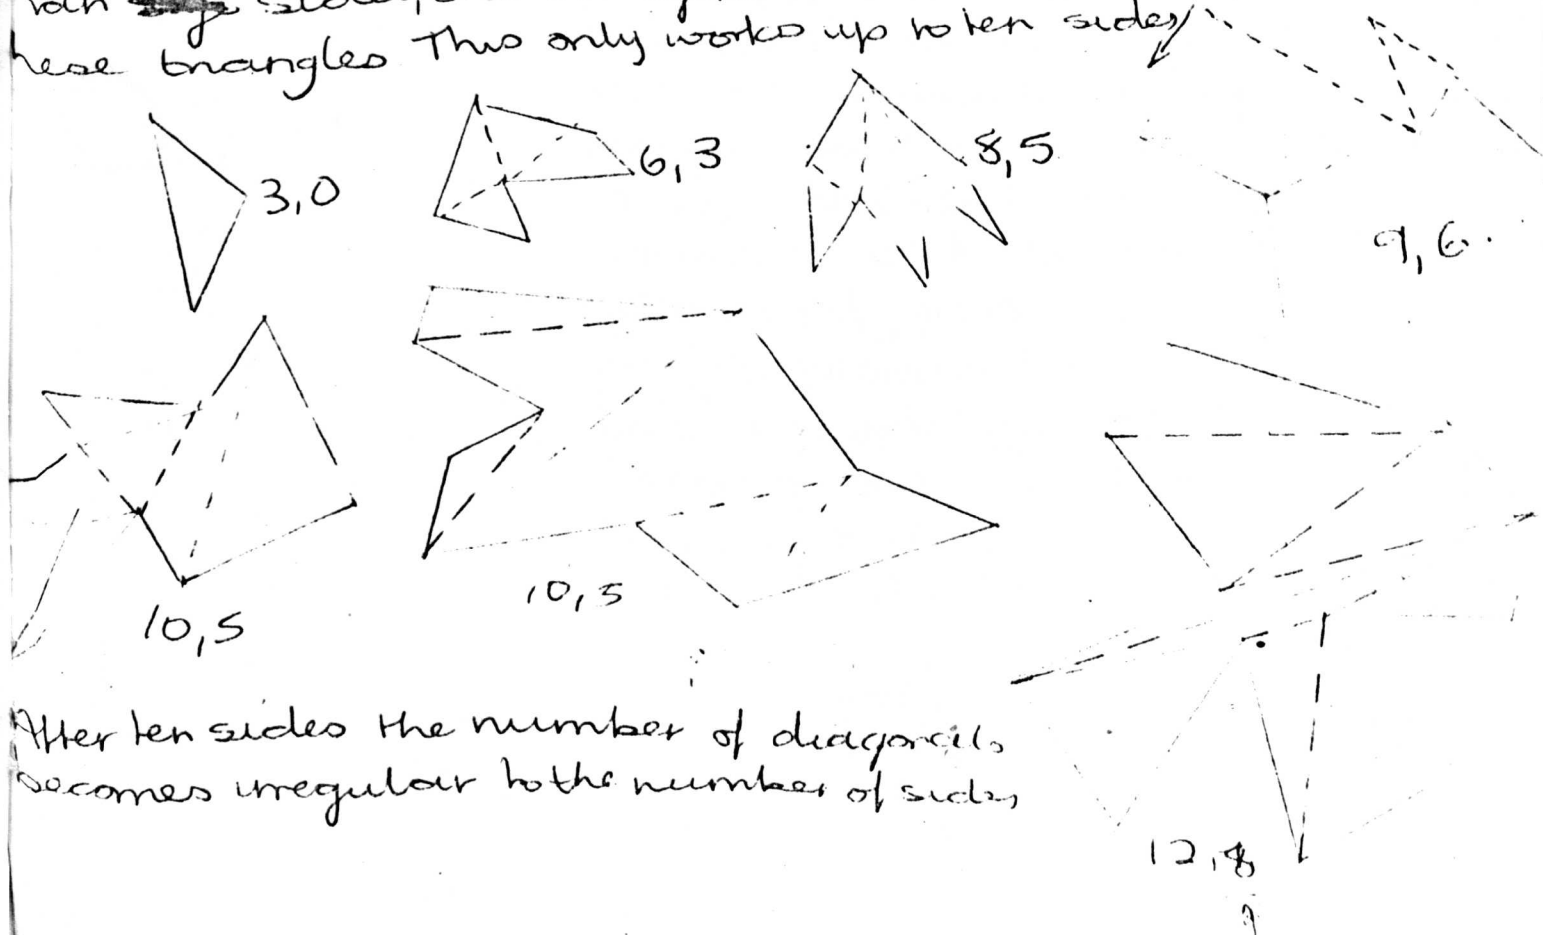 these triangles This only works up to ten sides
3,0
6,3
8,5
9,6.
10,5
10,5
After ten sides the number of diagonals
becomes irregular to the number of sides
12,8
?